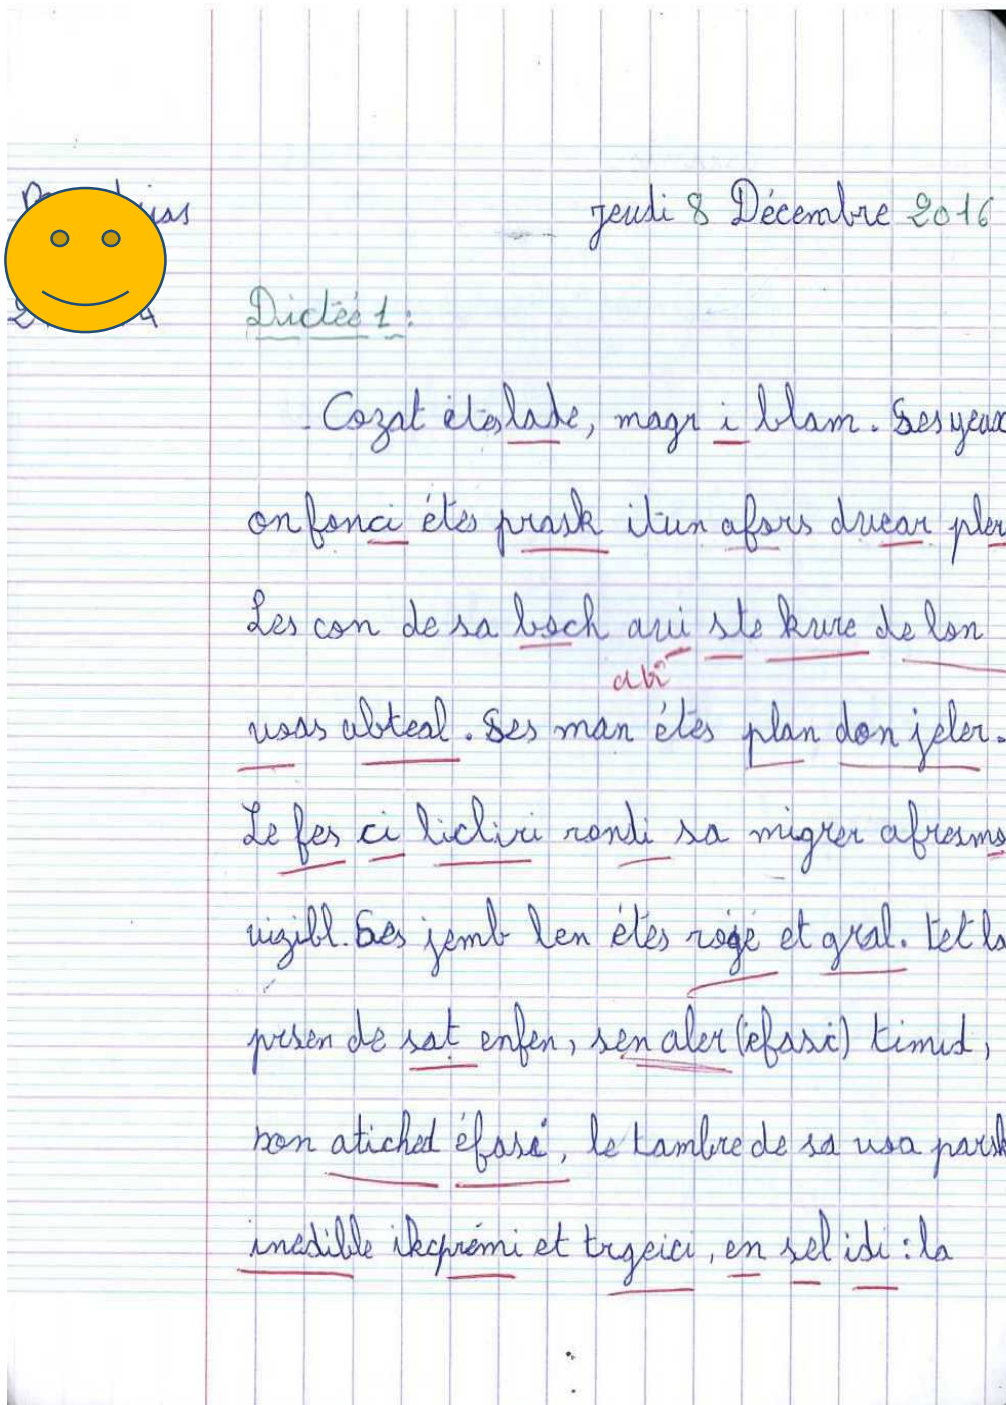 jeudi 8 Décembre 2016
Dictée 1 :
Cozat étes lade, magr i blam. Ses yeux
on fonci étes prask itun afors ducar pler
Les con de sa boch avi ste kure de lon
abi
usas abteal. Ses man étes plan don jeler.
Le fes ci licliri rondi sa migrer afresmo
vizibl. Ses jemb len étes rogé et gral. Tet la
prsen de sat enfen, sen aler (éfasé) timid,
son atiched éfasé, le tambre de sa usa parsk
inedible ikcprémi et trgeici, en sel idi : la